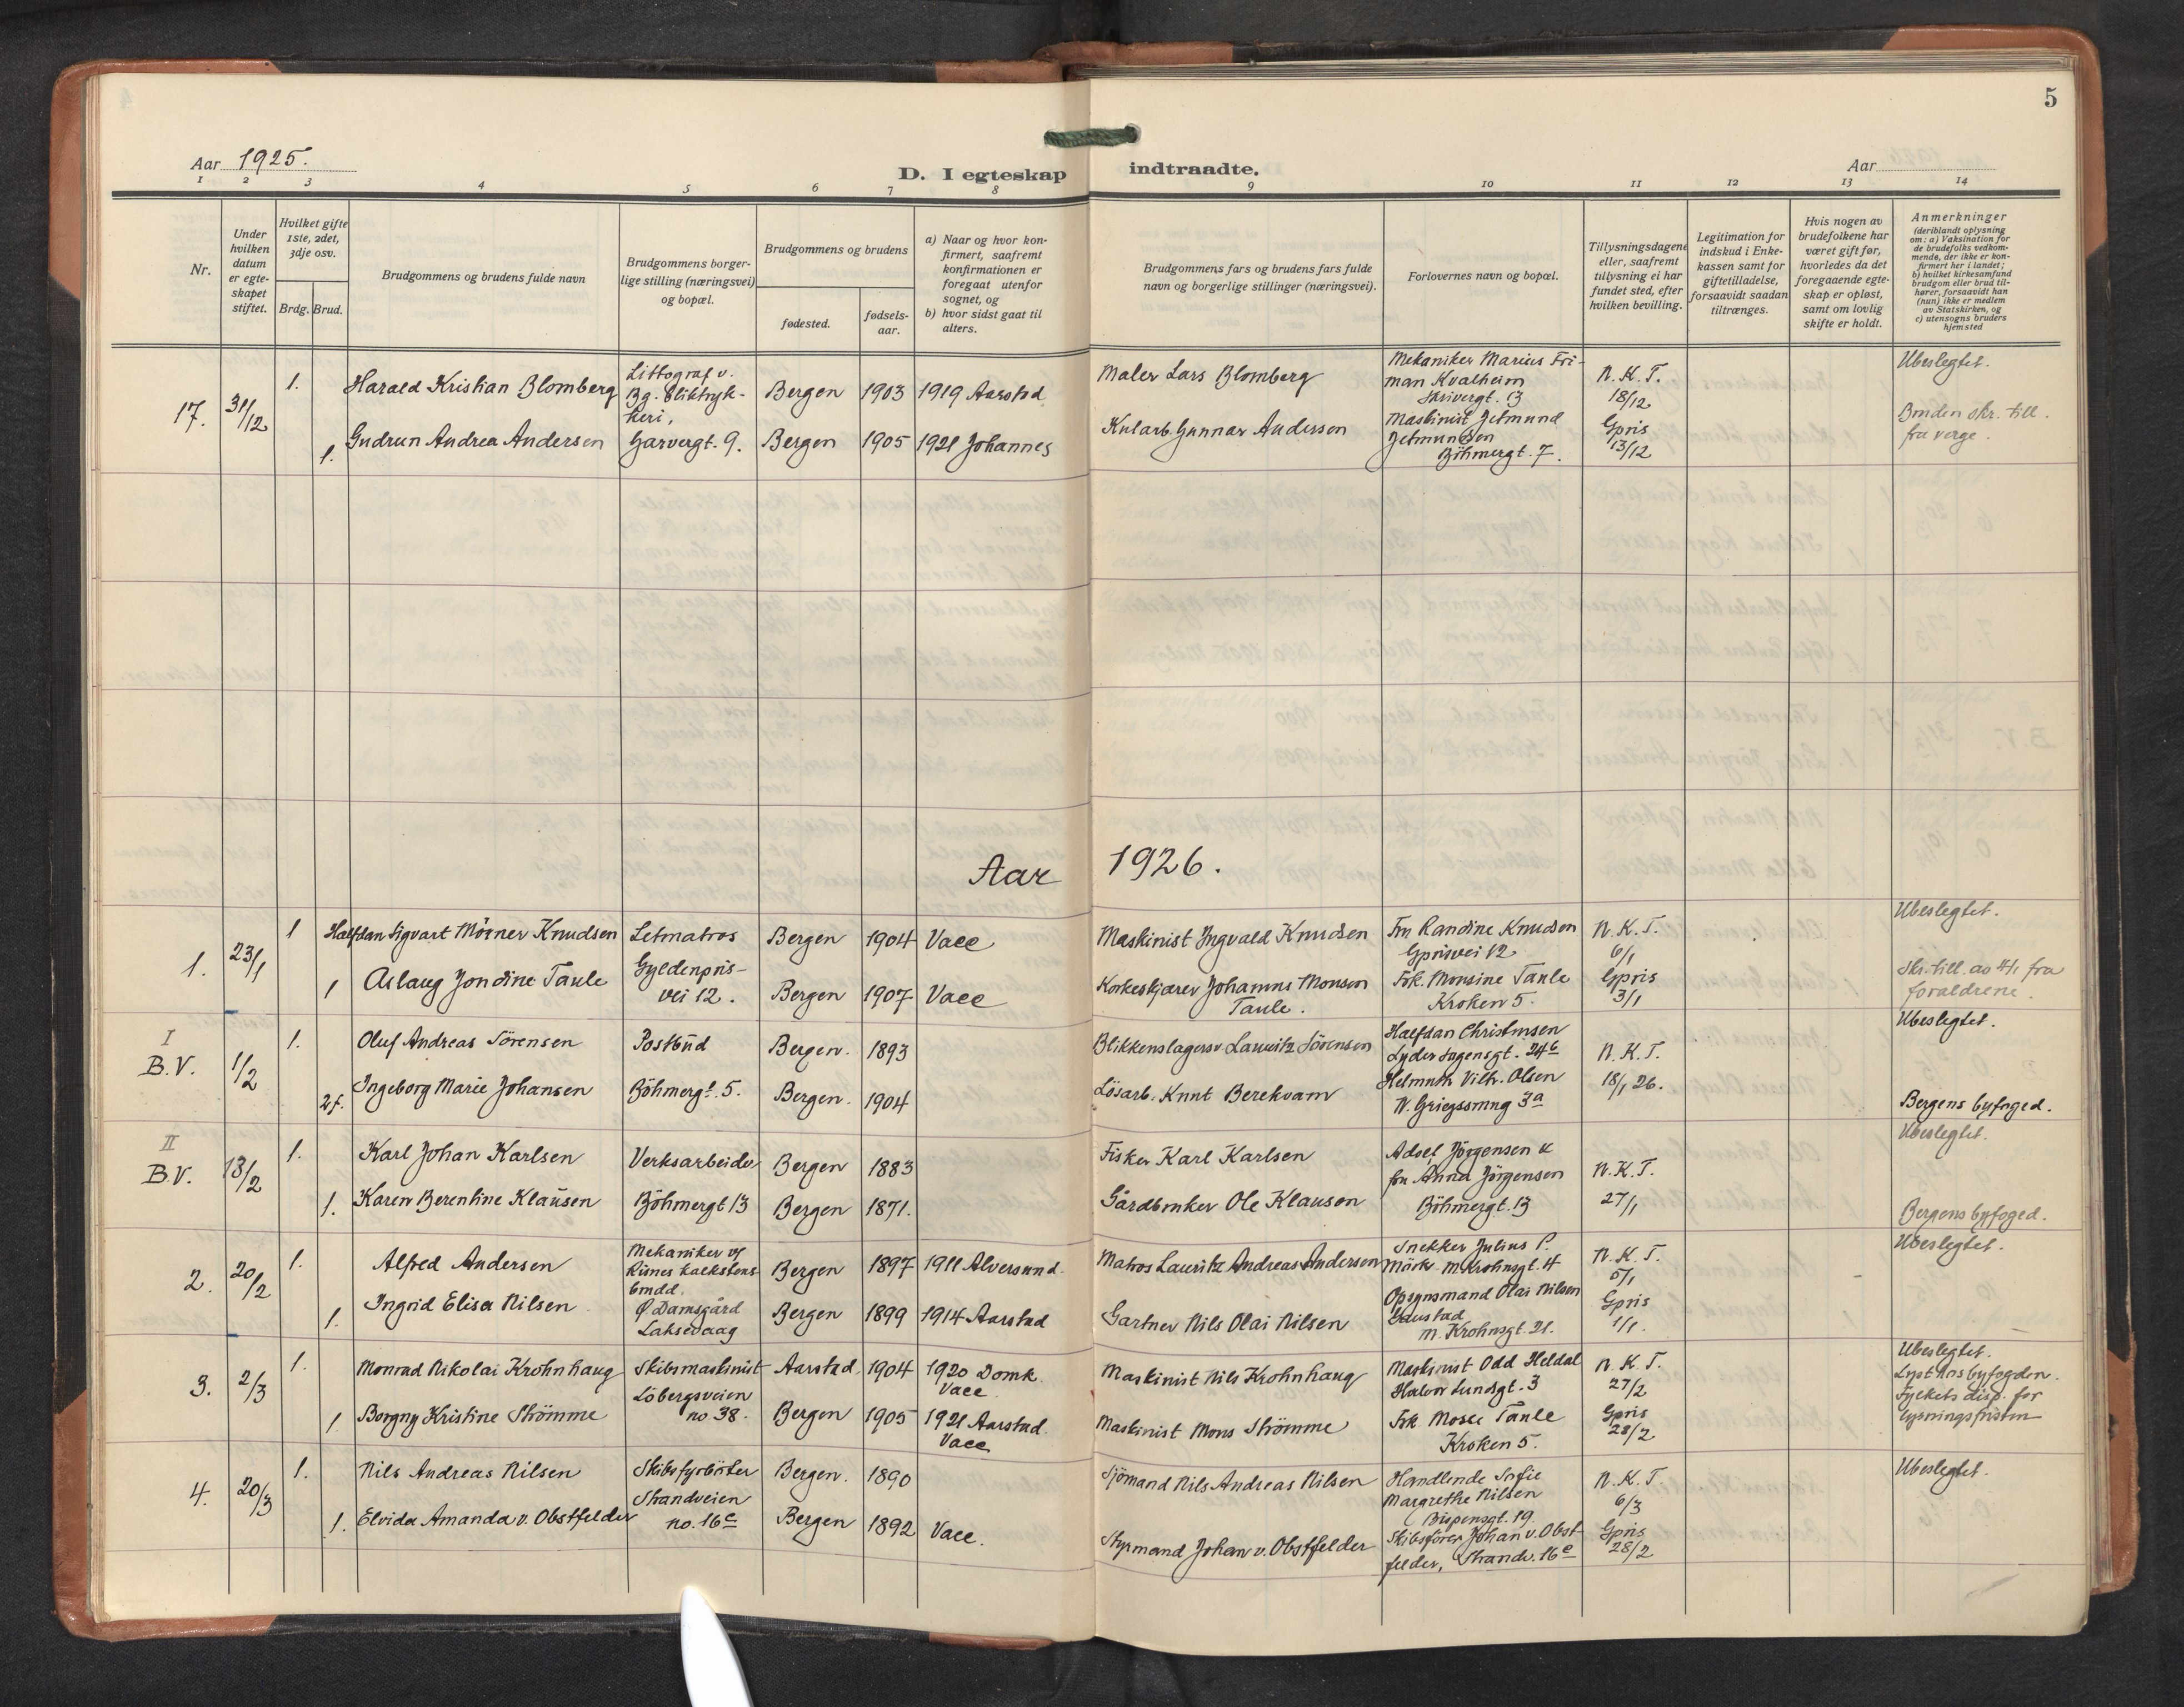 5
Aar 1925.
D. I egteskap indtraadte.
Aar
1 2 3 4 5 6 7 8 9 10 11 12 13 14
Nr.
Under hvilken datum er egteskapet stiftet.
Hvilket gifte 1ste, 2det, 3dje osv.
Brdg. Brud.
Brudgommens og brudens fulde navn
Brudgommens borgerlige stilling (næringsvei) og bopæl.
Brudgommens og brudens
fødested.
fødselsaar.
a) Naar og hvor konfirmert, saafremt konfirmationen er foregaat utenfor sognet, og
b) hvor sidst gaat til alters.
Brudgommens fars og brudens fars fulde navn og borgerlige stillinger (næringsvei).
Forlovernes navn og bopæl.
Tillysningsdagene eller, saafremt tillysning ei har fundet sted, efter hvilken bevilling.
Legitimation for indskud i Enkekassen samt for giftetilladelse, forsaavidt saadan tiltrænges.
Hvis nogen av brudefolkene har været gift før, hvorledes da det foregaaende egteskap er opløst, samt om lovlig skifte er holdt.
Anmerkninger (deriblandt oplysning om: a) Vaksination for de brudefolks vedkommende, der ikke er konfirmert her i landet; b) hvilket kirkesamfund brudgom eller brud tilhører, forsaavidt han (hun) ikke er medlem av Statskirken, og c) utensogns bruders hjemsted
17. 31/12
1. Harald Kristian Blomberg
Littograf v. Bg. Bliktrykkeri,
Bergen 1903 1919 Aarstad
Maler Lars Blomberg
Mekaniker Marius Friman Kvalheim
Skrivergt. 13
N. K. T. 18/12
Ubeslegtet.
1. Gudrun Andrea Andersen
Garvergt. 9.
Bergen 1905 1921 Johannes
Kularb. Gunnar Andersen
Maskinist Jetmund Jetmundsen
Böhmergt. 7.
Gpris 13/12
Bruden skr. till. fra verge.
Aar 1926.
1. 23/1
1 Halfdan Sigvart Mörner Knudsen
Letmatros
Bergen 1904 Vaee
Maskinist Ingvald Knudsen
Fru Randine Knudsen
Gprisvei 12
N. K. T. 6/1
Ubeslegtet.
1 Aslaug Jondine Taule
Gyldenprisvei 12.
Bergen 1907 Vaee
Korkeskjærer Johannes Monsen Taule.
Frk. Monsine Taule
Kroken 5.
Gpris 3/1
Skr. till. av 4/1 fra foraldrene.
I B.V. 1/2
1. Oluf Andreas Sörensen
Postbud
Bergen. 1893
Blikkenslagersv Lauritz Sörensen
Halfdan Christensen
Lyder Sagensgt. 24c
N. K. T. 18/1 26.
Ubeslegtet.
2f. Ingeborg Marie Johansen
Böhmergt. 5.
Bergen. 1904
Lösarb. Knut Berekvam
Helmuth Vilh. Olsen
N. Griegssmug 3a
Bergens byfoged.
II B.V. 13/2
1. Karl Johan Karlsen
Verksarbeider
Bergen 1883
Fisker Karl Karlsen
Adolf Jörgensen &
fru Anna Jörgensen
N. K. T. 27/1
Ubeslegtet.
1. Karen Berentine Klausen
Böhmergt 13
Bergen 1871.
Gårdbruker Ole Klausen
Böhmergt. 13
Bergens byfoged.
2. 20/2
1. Alfred Andersen
Mekaniker v/ Risnes kalkstensbrudd.
Bergen 1897 1911 Alversund.
Matros Lauritz Andreas Andersen
Snekker Julius P. Mörk M. Krohnsgt. 4
N. K. T. 5/1
Ubeslegtet.
1. Ingrid Elisa Nilsen
Ø. Damsgård Laksevaag
Bergen 1899 1914 Aarstad
Gartner Nils Olai Nilsen
Opsynsmand Olai Nilsen Gaustad
M. Krohnsgt. 21.
Gpris 1/1.
3. 2/3
1. Monrad Nikolai Krohnhaug
Skibsmaskinist
Aarstad. 1904 1920 Domk. Vaee
Maskinist Nils Krohnhaug
Maskinist Odd Heldal
Halvor Lundsgt. 3
N. K. T. 27/2
Ubeslegtet.
Lyst hos byfogden.
Fylkets disp. for lysningsfristen
1 Borgny Kristine Strömme
Löbergsveien no 38.
Bergen 1905 1921 Aarstad. Vaee
Maskinist Mons Strömme
Frk Taule
Kroken 5.
Gpris 28/2
4. 20/3
1. Nils Andreas Nilsen
Skibsfyrböter
Bergen. 1890
Sjömand Nils Andreas Nilsen
Handlende Sofie Margrethe Nilsen
Bispensgt. 19.
N. K. T. 6/3
Ubeslegtet.
1. Elvida Amanda v. Obstfelder
Strandveien no. 16c
Bergen 1892 Vaee.
Styrmand Johan v. Obstfelder
Skibsförer Johan v. Obstfelder, Strandv. 16c
Gpris 28/2